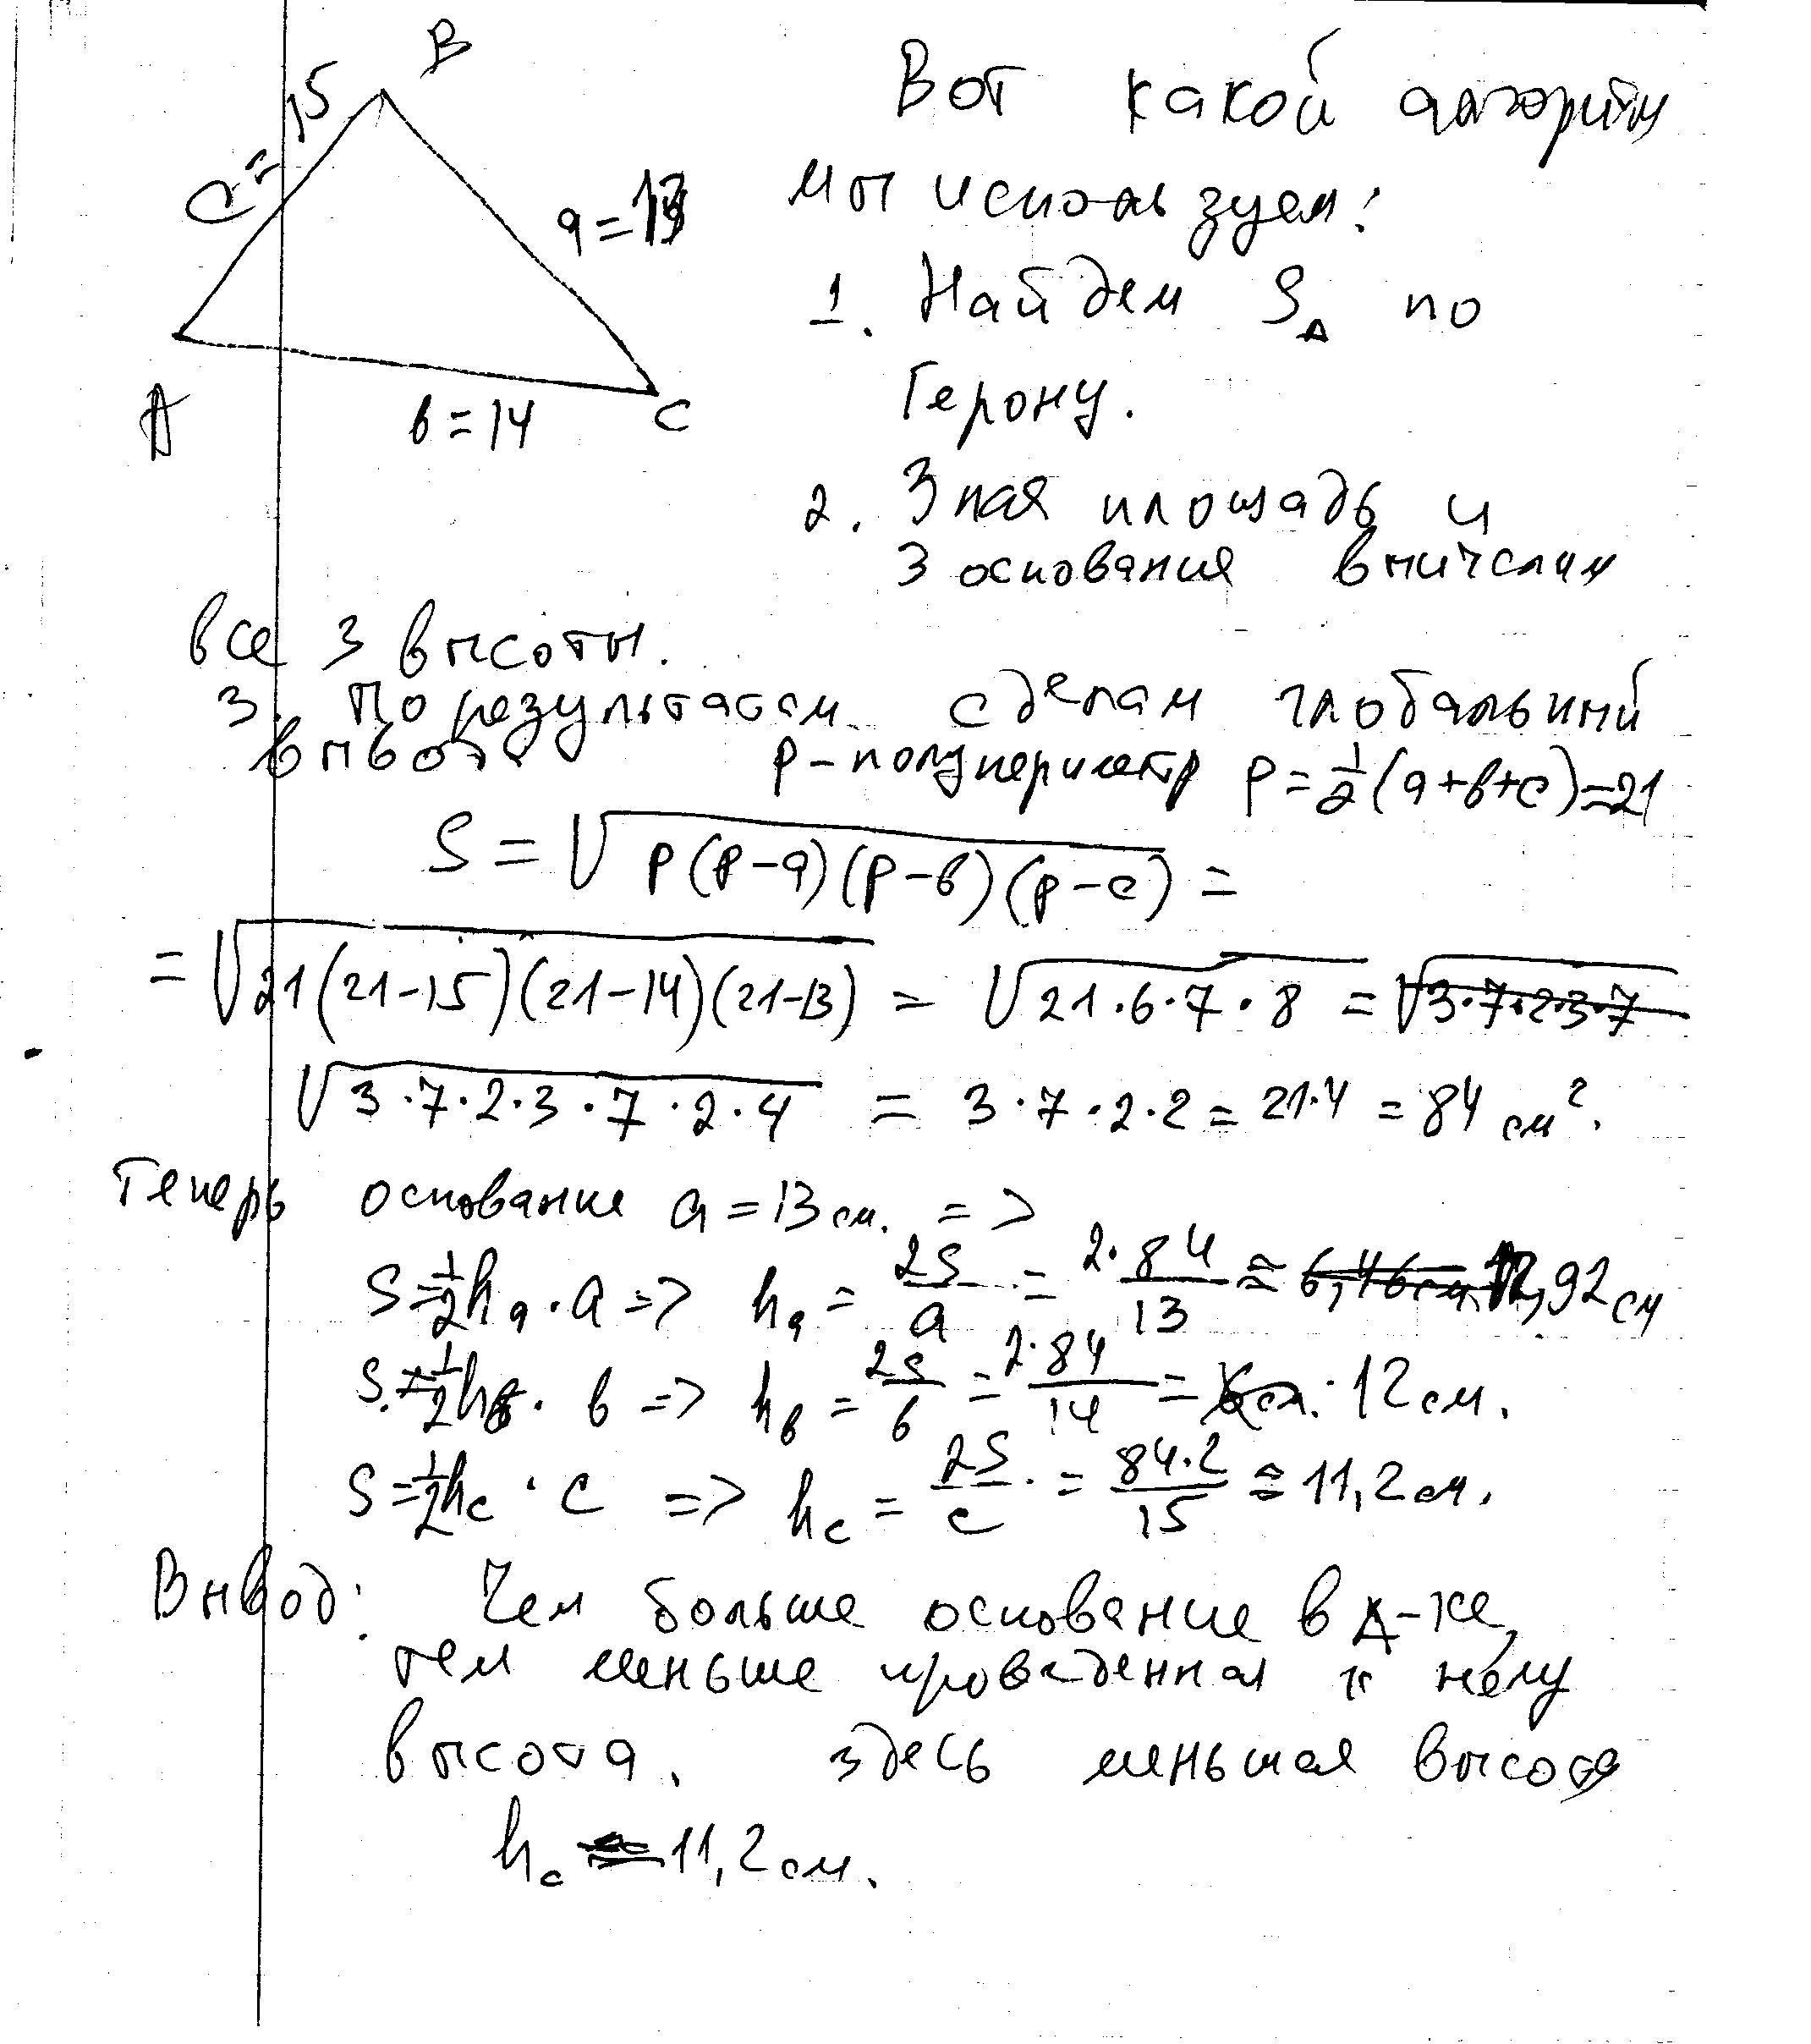 B
c=15
a=13
A
в=14
C
Вот какой алгоритм
мы используем:
1. Найдем S△ по
Герону.
2. Зная площадь и
3 основания вычислим
все 3 высоты.
3. По результатам сделам глобальный
вывод
p-полупериметр p=1/2(a+в+c)=21
S = √p(p-a)(p-в)(p-c) =
= √21(21-15)(21-14)(21-13) = √21·6·7·8 = √3·7·2·3·7
√3·7·2·3·7·2·4 = 3·7·2·2=21·4=84 см².
Теперь основание a=13см. =>
S=1/2hₐ·a => hₐ = 2S/a = 2·84/13 ≈ 6,46см 12,92см
S=1/2hв·в => hв = 2S/в = 2·84/14 = 6см. 12см.
S=1/2hc·c => hc = 2S/c = 84·2/15 ≈ 11,2см.
Вывод: Чем больше основание в △-ке,
тем меньше проведенная к нему
высота. Здесь меньшая высота
hc = 11,2см.